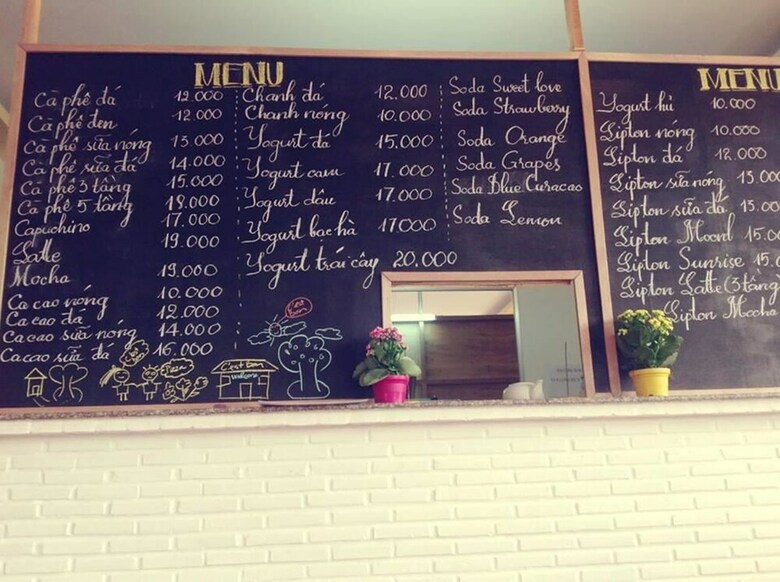 MENU
Cà phê đá 12.000
Cà phê đen 12.000
Cà phê sữa nóng 13.000
Cà phê sữa đá 14.000
Cà phê 3 tầng 15.000
Cà phê 5 tầng 18.000
Capuchino 17.000
Latte 19.000
Mocha 19.000
Ca cao nóng 10.000
Ca cao đá 12.000
Ca cao sữa nóng 14.000
Ca cao sữa đá 16.000
Chanh đá 12.000
Chanh nóng 10.000
Yogurt đá 15.000
Yogurt cam 17.000
Yogurt dâu 17.000
Yogurt bạc hà 17000
Yogurt trái cây 20.000
Soda Sweet love
Soda Strawberry
Soda Orange
Soda Grapes
Soda Blue Curacao
Soda Lemon
C'est Bon
C'est Bon
MENU
Yogurt hủ 10.000
Lipton nóng 10.000
Lipton đá 12.000
Lipton sữa nóng 13.000
Lipton sữa đá 13.00
Lipton Moonl 15.0
Lipton Sunrise 15.
Lipton Latte (3 tầng
Lipton Mocha